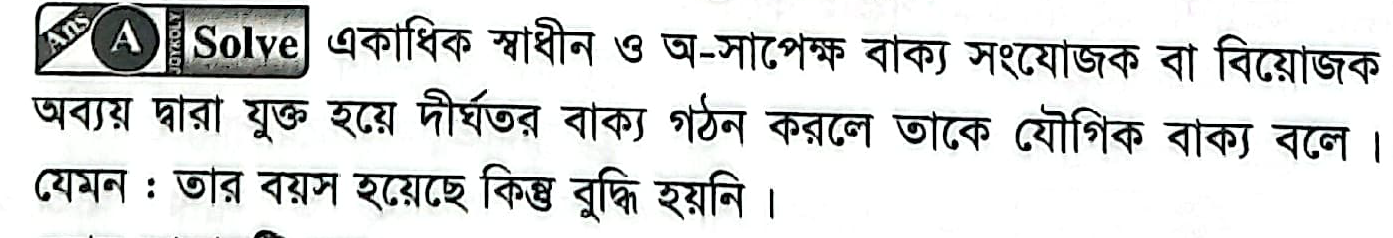 Ans A JOYKOLY Solve একাধিক স্বাধীন ও অ-সাপেক্ষ বাক্য সংযোজক বা বিয়োজক
অব্যয় দ্বারা যুক্ত হয়ে দীর্ঘতর বাক্য গঠন করলে তাকে যৌগিক বাক্য বলে ।
যেমন : তার বয়স হয়েছে কিন্তু বুদ্ধি হয়নি ।